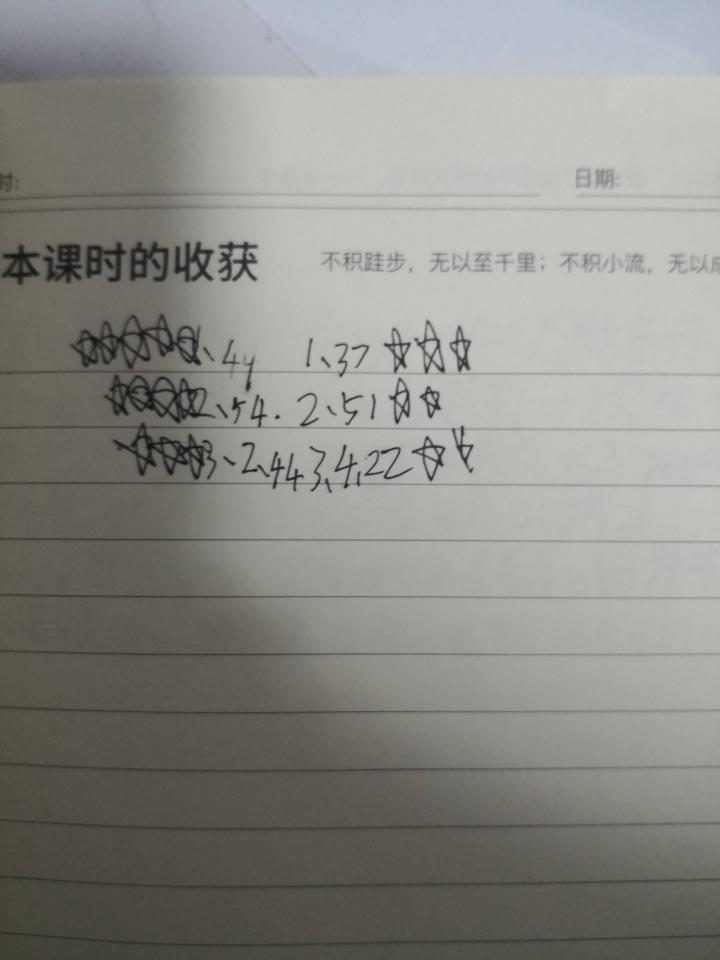 时:
日期:
本课时的收获
不积跬步，无以至千里；不积小流，无以成
☆☆☆☆☆1、44 1、37 ☆☆☆
☆☆☆☆2、54. 2、51 ☆☆
☆☆☆3、2、44 3、4、22 ☆☆